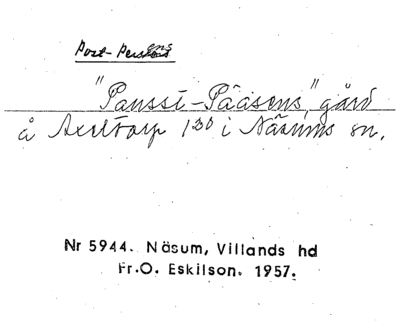 Post-Persens
"Paussi-Pååsens" gård
å Axeltorp 130 i Näsums sn.
Nr 5944. Näsum, Villands hd
Fr.O. Eskilson. 1957.